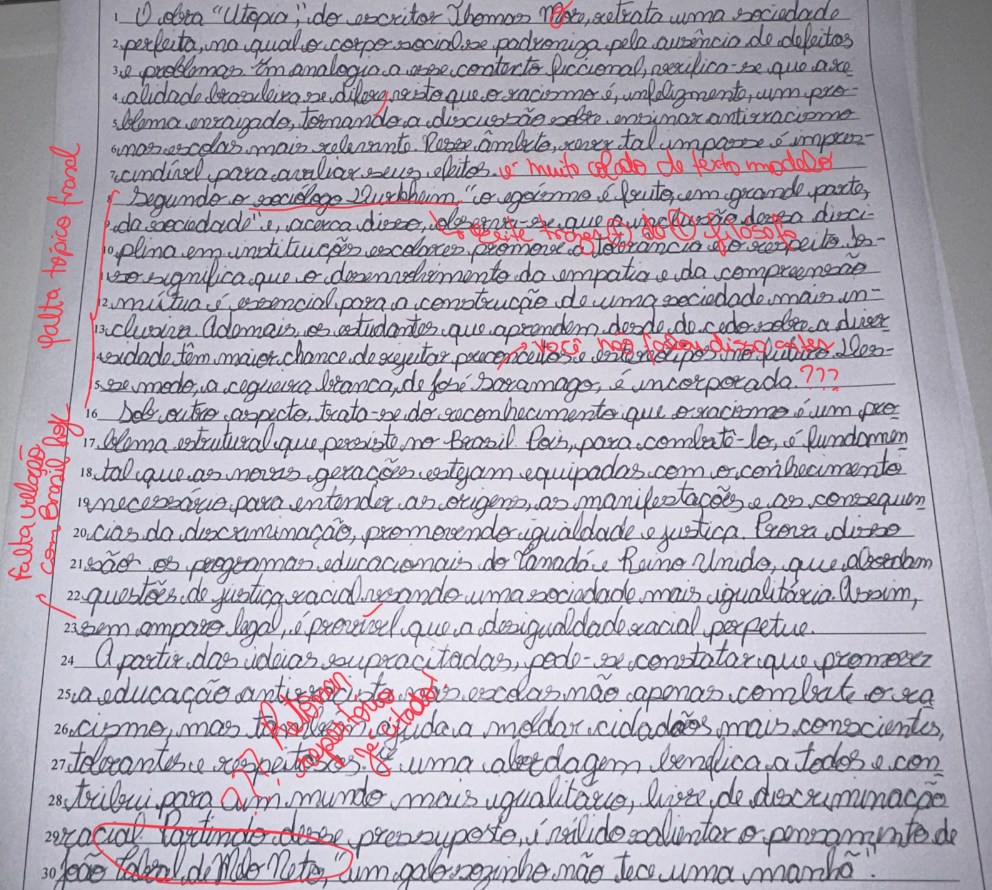 1 A obra "Utopia", do escritor Thomas More, retrata uma sociedade
2 perfeita, na qual o corpo social se padroniza pela ausência de defeitos
3 e problemas. Em analogia a esse contexto ficcional, verifica-se que a re
4 alidade brasileira se difere, visto que o racismo é, infelizmente, um pro-
5 blema enraizado, tornando a discussão sobre ensinar antirracismo
6 nas escolas mais relevante. Nesse âmbito, rever tal impasse é impres-
7 cindível para avaliar seus efeitos. é muito colado de texto modelo
8 Segundo o sociólogo Durkheim, "o egoísmo é fruto, em grande parte,
9 da sociedade" e, acerca disso, que a inclusão dessa disci-
cite trechos do filósofo
10 plina em instituições escolares promove a tolerância e o respeito. Is-
11 so significa que o desenvolvimento da empatia e da compreensão
12 mútua é essencial para a construção de uma sociedade mais in-
13 clusiva. Ademais, os estudantes que aprendem desde de cedo sobre a diver
14 sidade têm maior chance de rejeitar preconceitos e no futuro. Des-
você não falou disso antes
15 se modo, a cegueira branca, de José Saramago, é incorporada. ???
16 Sob outro aspecto, trata-se do reconhecimento que o racismo é um pro
17 blema estrutural que persiste no Brasil. Pois, para combatê-lo, é fundamen
18 tal que as novas gerações estejam equipadas com o conhecimento
19 necessário para entender as origens, as manifestações e as consequên
20 cias da discriminação, promovendo igualdade e justiça. Prova disso
21 são os programas educacionais do Canadá e Reino Unido, que abordam
22 questões de justiça racial visando uma sociedade mais igualitária. Assim,
23 sem amparo legal, é provável que a desigualdade racial perpetue.
24 A partir das ideias supracitadas, pode-se constatar que promover
25 a educação nas escolas não apenas combate o ra
26 cismo, mas ajuda a moldar cidadãos mais conscientes,
27 tolerantes e respeitosos. É uma abordagem benéfica a todos e con
28 tribui para um mundo mais igualitário, livre de discriminação
29 racial. Partindo desse pressuposto, é válido salientar o pensamento de
30 João Cabral de Melo Neto, "um galo sozinho não tece uma manhã".
falta tópico frasal
Falta relação com Brasil hoje
??? Retomar repertório já citado!